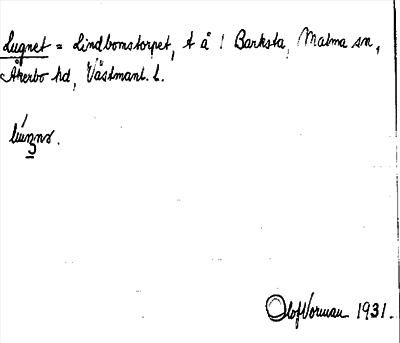 Lugnet = Lindbomstorpet, t å ! Barksta, Malma sn,
Åkerbo hd, Västmanl. l.
Olof Vorman 1931.